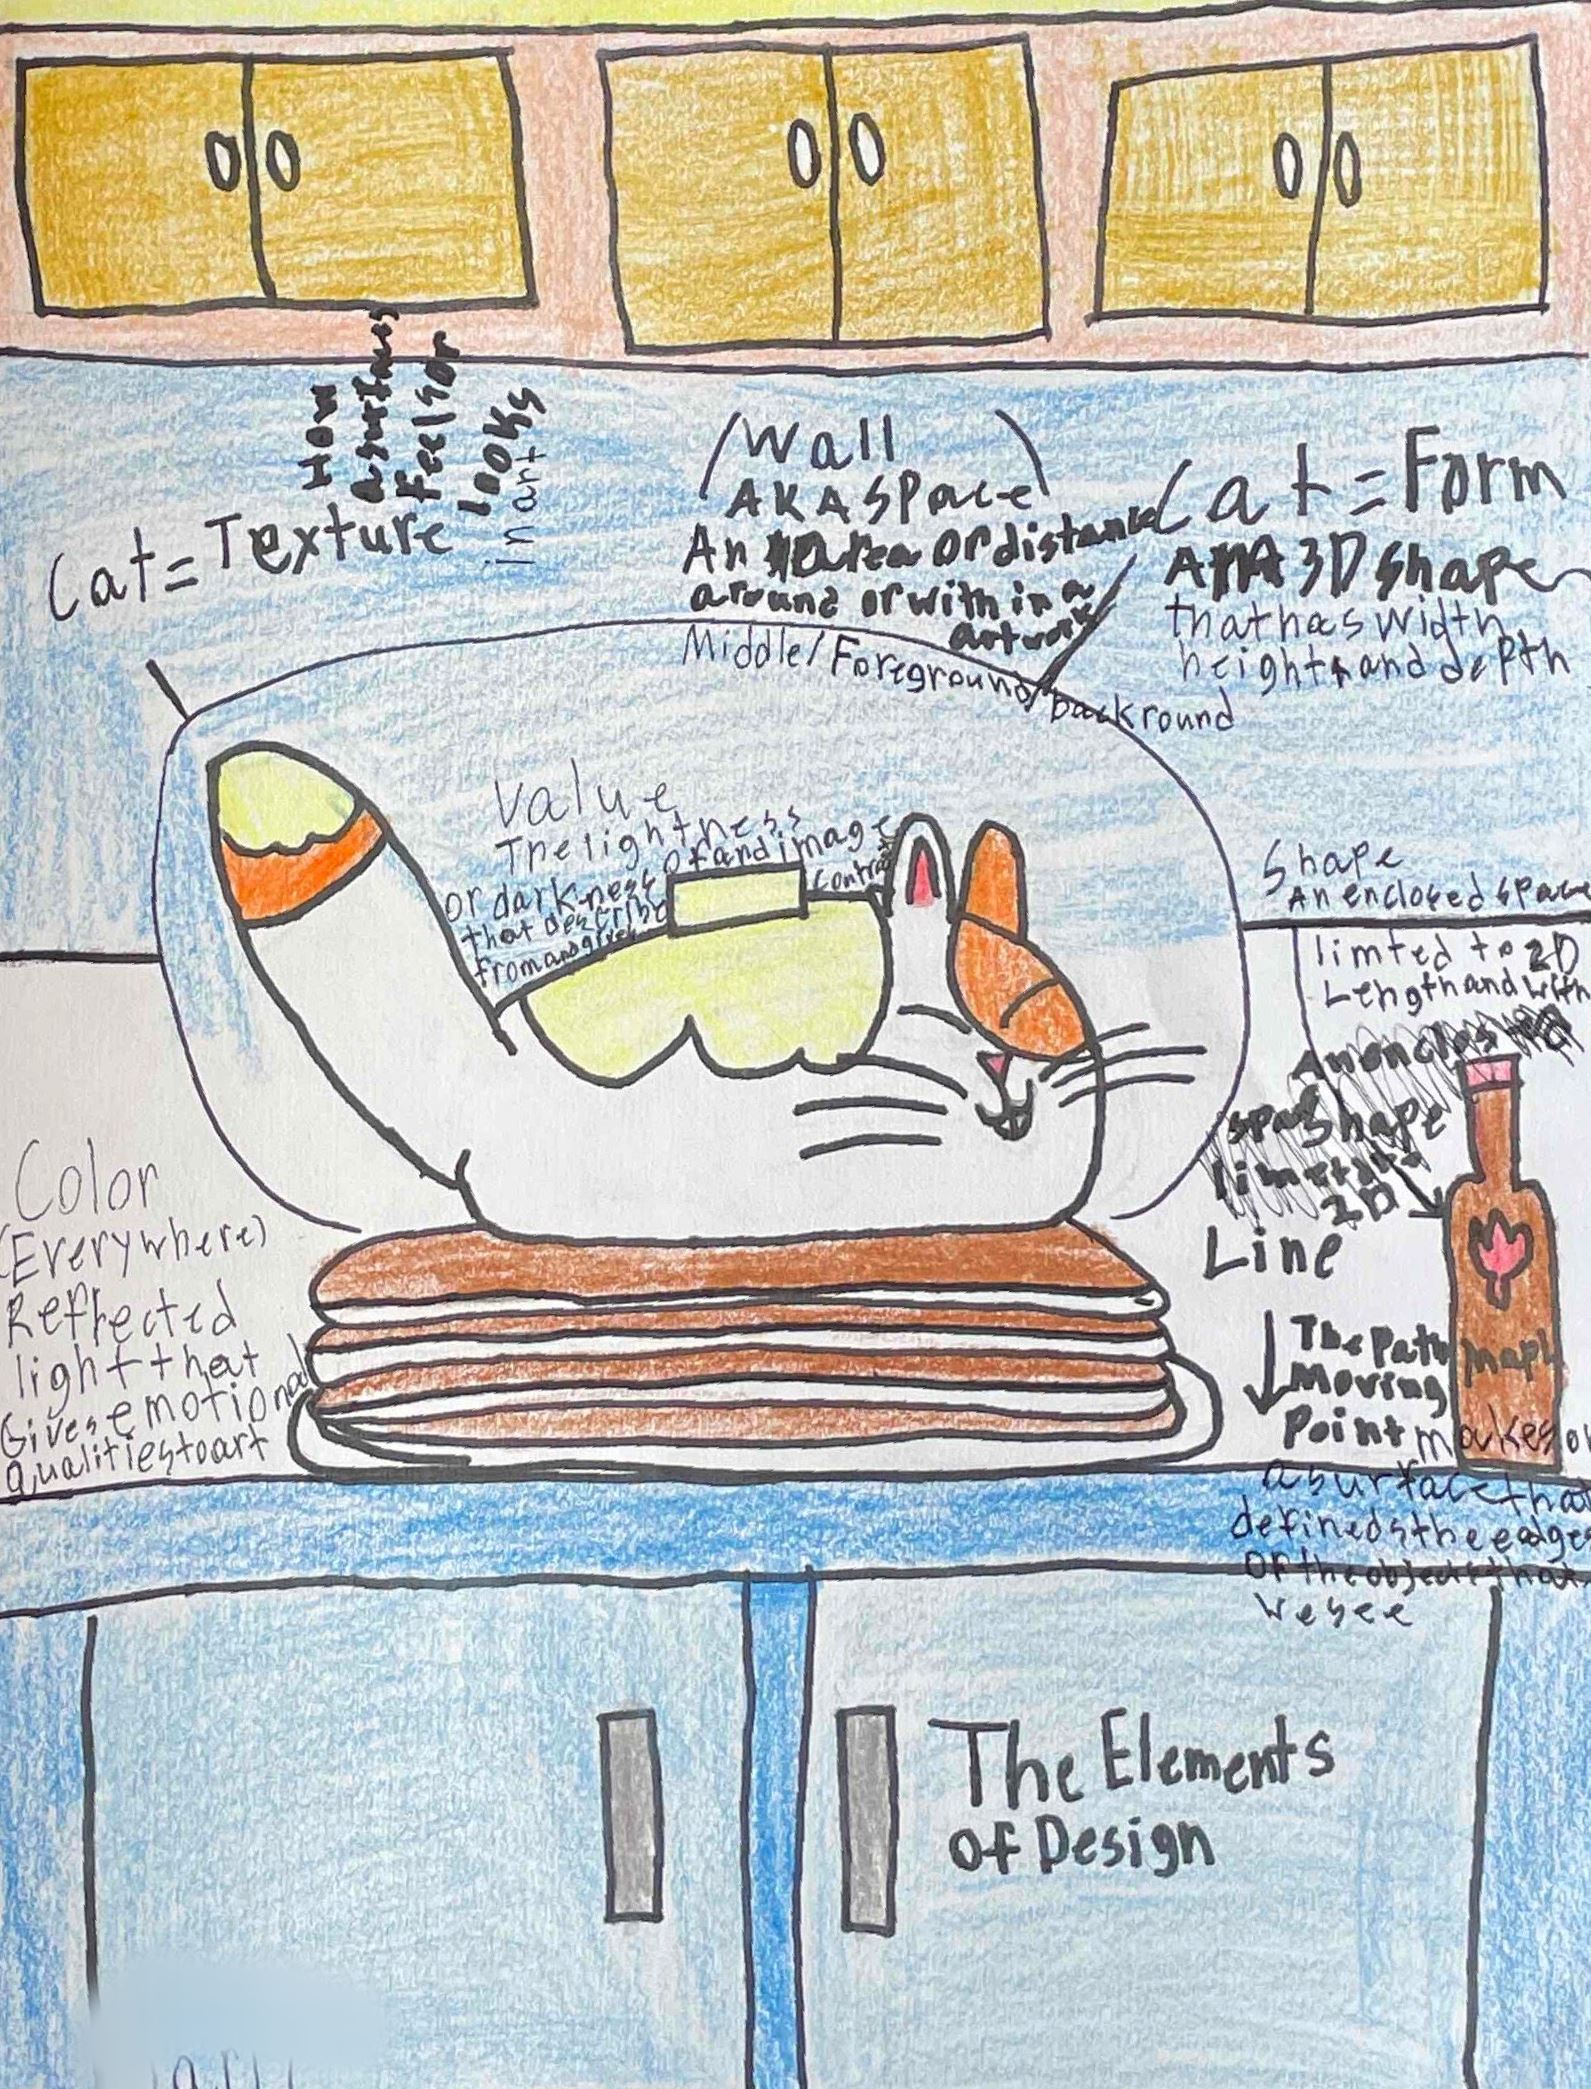 How
a surface
feels or
looks
in art
Cat = Texture
(Wall)
AKA Space
An area or distance
around or with in a
artwork
Middle/Foreground/
backround
Cat = Form
A 3D shape
that has width
height and depth
Value
The lightness
or darkness of and image
that describe
from and gives
contrast
Shape
An enclosed space
limted to 2D
Length and with
Shape
2D
Color
(Everywhere)
Reflected
light that
Gives emotional
qualities to art
Line
The Path
Moving
Point makes on
a surface that
defineds the eedges
of the objects that
we see
maple
The Elements
of Design